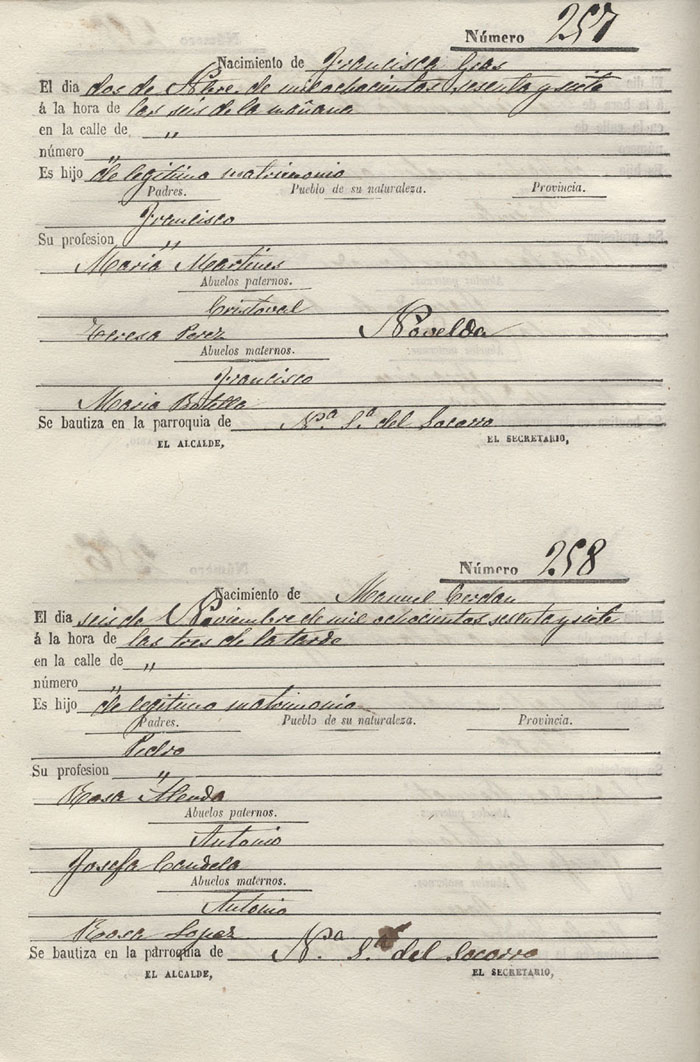 Número 257
Nacimiento de Francisca Gras
El dia dos de Nbre. de mil ochocientos sesenta y siete
á la hora de las seis de la mañana
en la calle de "
número "
Es hijo de legitimo matrimonio
Padres. Pueblo de su naturaleza. Provincia.
Francisco
Su profesion "
Maria Martines
Abuelos paternos.
Cristoval
Teresa Perez Novelda
Abuelos maternos.
Francisco
Maria Botella
Se bautiza en la parroquia de Nª. Sª. del Socorro
EL ALCALDE, EL SECRETARIO,
Número 258
Nacimiento de Manuel Cerdan
El dia seis de Noviembre de mil ochocientos sesenta y siete
á la hora de las tres de la tarde
en la calle de "
número "
Es hijo de legitimo matrimonio
Padres. Pueblo de su naturaleza. Provincia.
Pedro
Su profesion "
Rosa
Abuelos paternos.
Antonio
Josefa Candela
Abuelos maternos.
Antonio
Rosa Lopez
Se bautiza en la parroquia de Nª. Sª. del Socorro
EL ALCALDE, EL SECRETARIO,